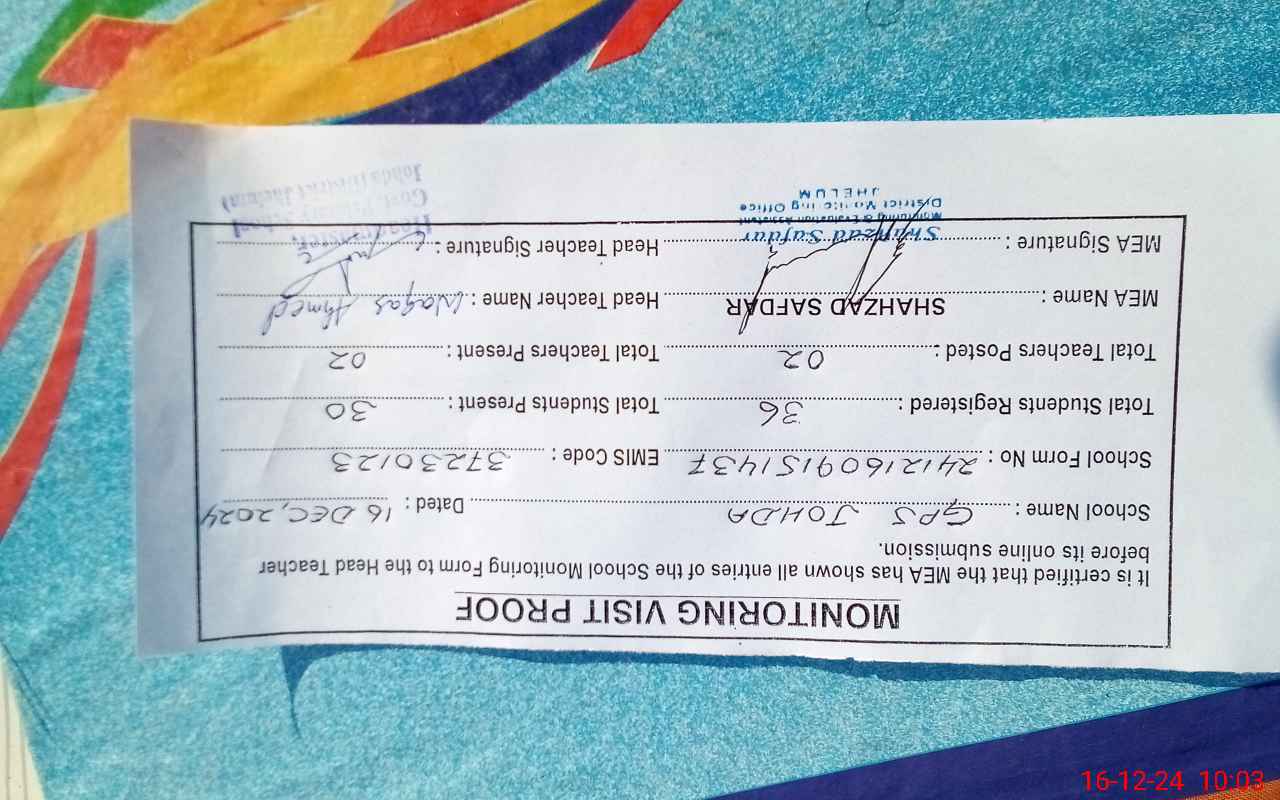 MONITORING VISIT PROOF
It is certified that the MEA has shown all entries of the School Monitoring Form to the Head Teacher
before its online submission.
School Name : GPS JOHDA Dated : 16 DEC, 2024
School Form No : 24121609151437 EMIS Code : 37230123
Total Students Registered : 36 Total Students Present : 30
Total Teachers Posted : 02 Total Teachers Present : 02
MEA Name : SHAHZAD SAFDAR Head Teacher Name : Waqas Ahmed
MEA Signature : Head Teacher Signature :
Shahzad Safdar
Monitoring & Evaluation Assistant
District Monitoring Office
JHELUM
Headmaster
Govt. Primary School
Johda (District Jhelum)
16-12-24 10:03